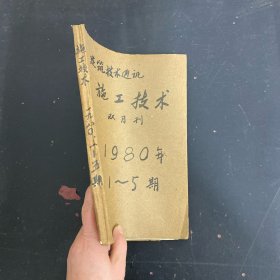 建筑技术通讯
施工技术
双月刊
1980年
1~5期
施工技术 一九八〇.1~5期